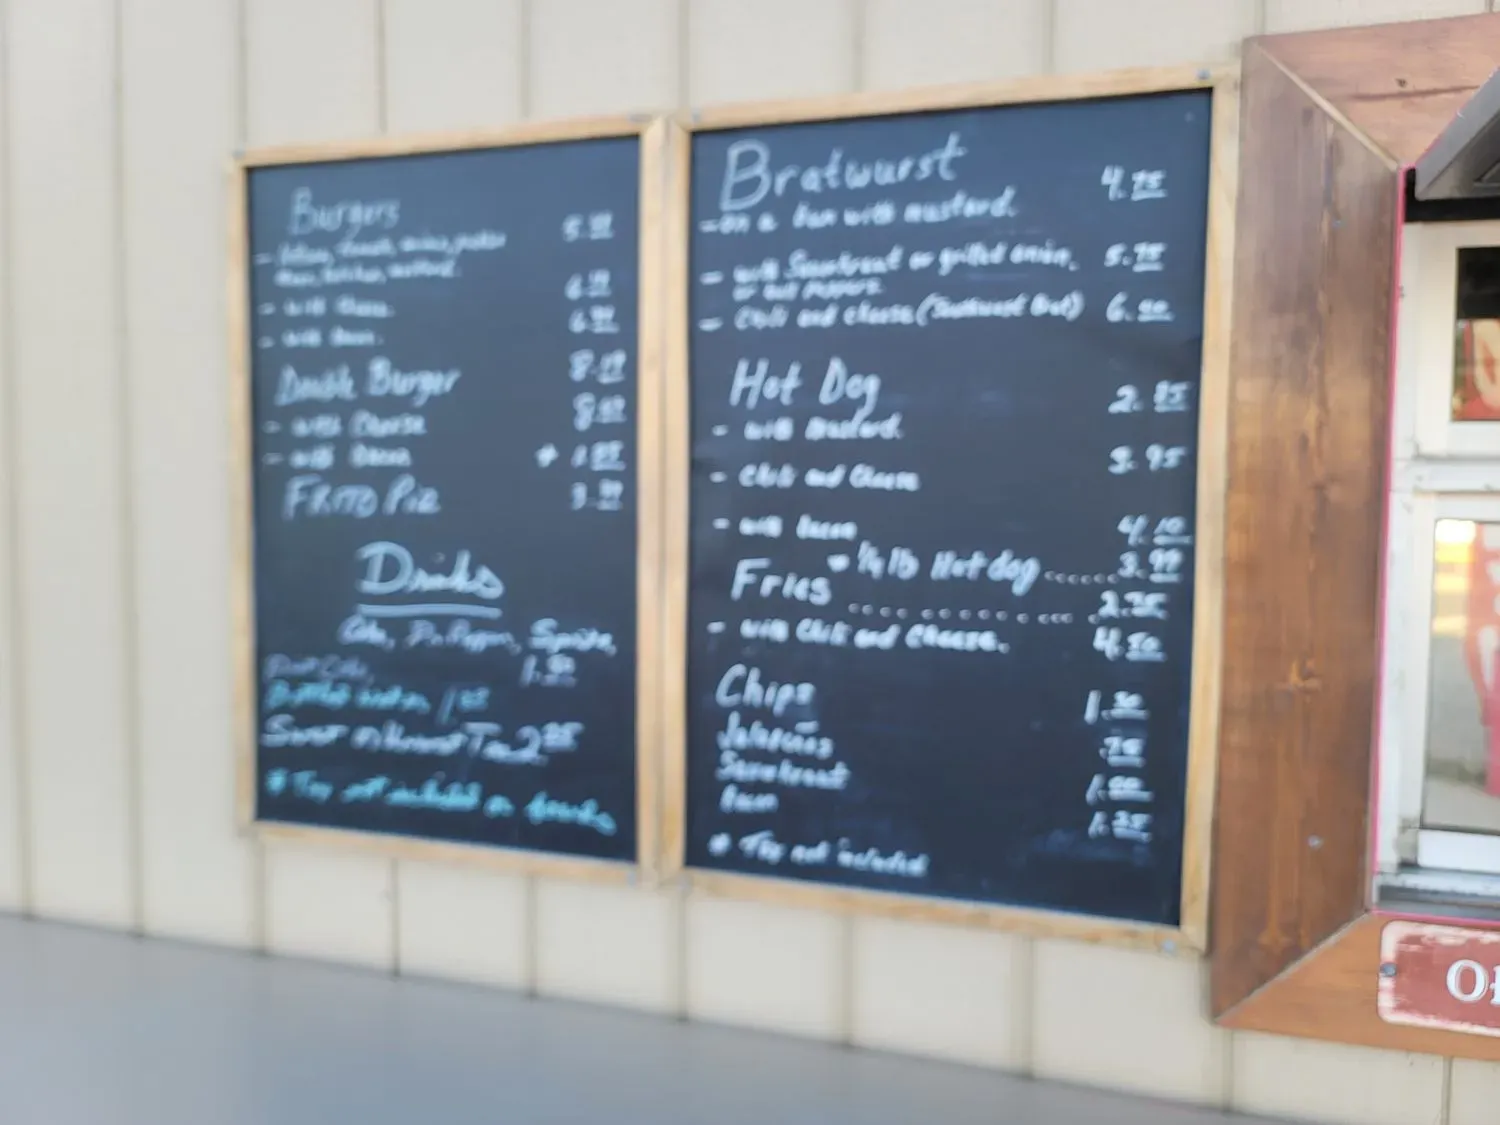 Burgers 5.
tomato, onion, pickles
mustard.
- with Cheese. 6.
- with Bacon. 6.
Double Burger 8.
- with Cheese 8.
- with Bacon * 1.
FRITO Pie 3.99
Drinks
Coke, Dr. Pepper, Sprite,
Diet Coke, 1.50
Bottled water
Sweet or Unsweet Tea 2
* Tax not included on boards
Bratwurst 4.75
- on a bun with mustard.
- with Sauerkraut or grilled onion, 5.75
or hot peppers.
- Chili and cheese (Southwest Brat) 6.
Hot Dog 2.
- with Mustard.
- Chili and Cheese 3.95
- with bacon 4.10
* 1/4 lb Hot dog......3.99
Fries ............ 2.
- with Chili and Cheese. 4.50
Chips 1.50
Jalapeños .75
Sauerkraut 1.00
Bacon 1.25
* Tax not included